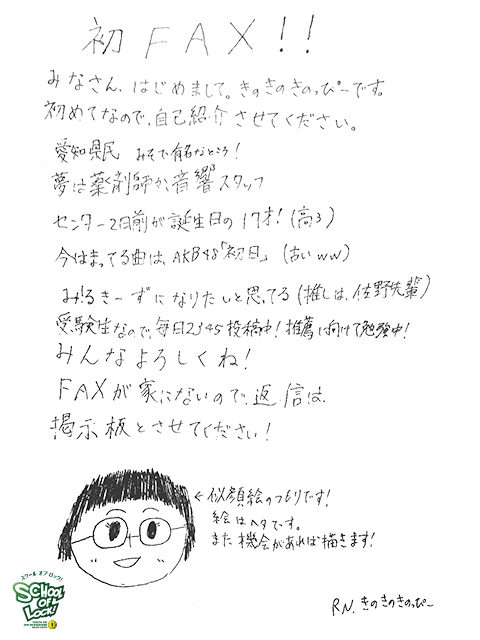 初FAX!!
みなさん、はじめまして。きのきのきのっぴーです。
初めてなので、自己紹介させてください。
愛知県民 みそで有名なところ!
夢は薬剤師か、音響スタッフ
センター2日前が誕生日の17才!(高3)
今はまってる曲は、AKB48「初日」(古いww)
みるきーずになりたいと思ってる(推しは、佐野先輩)
受験生なので、毎日2345投稿中!推薦に向けて勉強中!
みんなよろしくね!
FAXが家にないので、返信は、
掲示板とさせてください!
←似顔絵のつもりです!
絵はヘタです。
また機会があれば描きます!
スクールオブロック!
SCHOOL OF LOCK!
R.N.きのきのきのっぴー